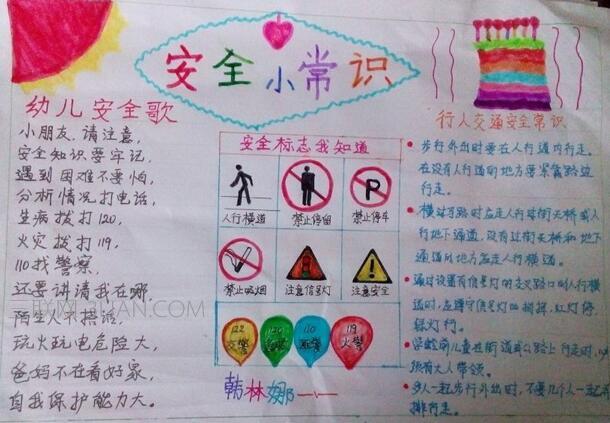 安全小常识
幼儿安全歌
小朋友,请注意,
安全知识要牢记,
遇到困难不要怕,
分析情况打电话,
生病拨打120,
火灾拨打119,
110找警察,
还要讲清我在哪,
陌生人不搭话,
玩火玩电危险大,
爸妈不在看好家,
自我保护能力大。
安全标志我知道
人行横道
禁止停留
禁止停车
P
禁止吸烟
注意信号灯
注意安全
122
交警
120
110
119
火警
韩林娜
行人交通安全常识
步行外出时要在人行道内行走。
在没有人行道的地方要靠路边
行走。
横过马路时应走人行过街天桥或人
行地下通道,没有过街天桥和地下
通道的地方应走人行横道。
通过设置有信号灯的交叉路口的人行横
道时,应遵守信号灯的指挥,红灯停,
绿灯行。
学龄前儿童在街道或公路上行走时,
须有大人带领。
多人一起步行外出时,不要几个人一起
排行走。